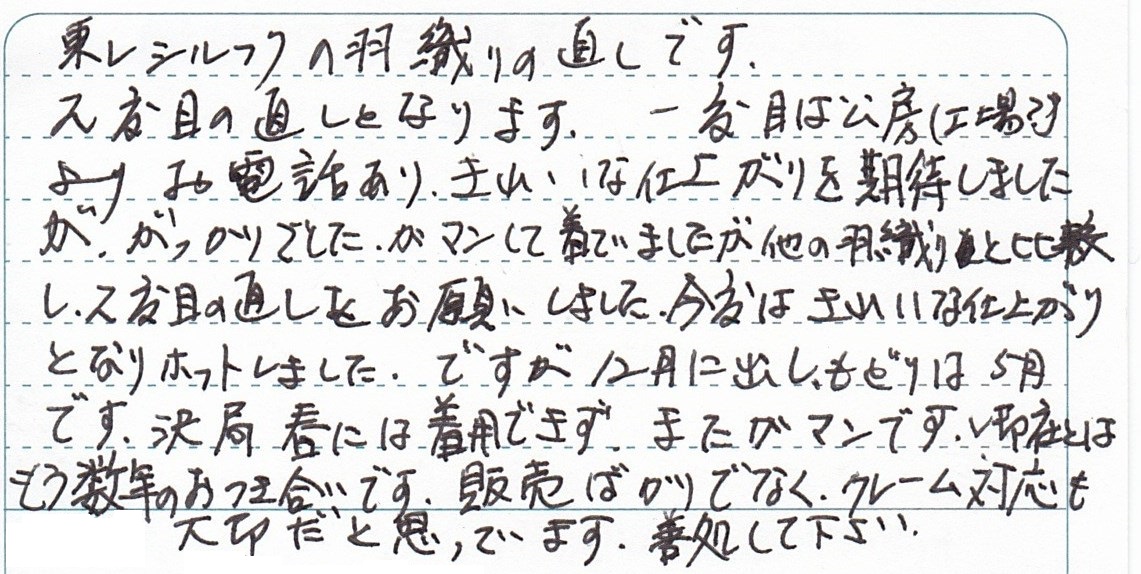 東レシルックの羽織りの直しです.
2度目の直しとなります. 一度目は公房(工場?)
より お電話あり. きれいな仕上がりを期待しました
が. がっかりでした. ガマンして着ていましたが他の羽織りと比較
し. 2度目の直しをお願いしました. 今度はきれいな仕上がり
となりホットしました. ですが 12月に出し、もどりは 5月
です. 決局 春には着用できず またガマンです.
もう数年のおつき合いです. 販売ばかりでなく. クレーム対応も
大切だと思っています. 善処して下さい.